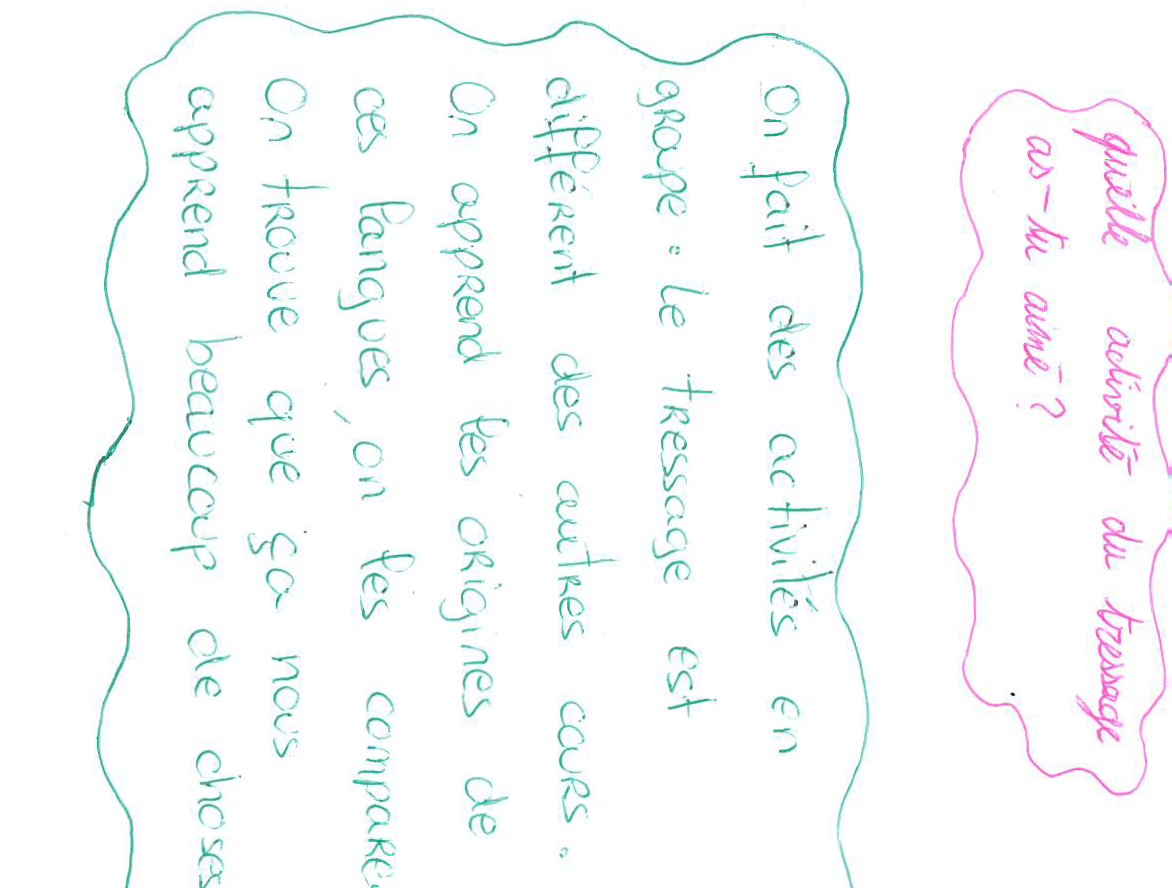 quelle activité du tressage
as-tu aimé ?
On fait des activités en
groupe. le tressage est
différent des autres cours.
On apprend les origines de
ces langues, on les compare.
On trouve que ça nous
apprend beaucoup de choses